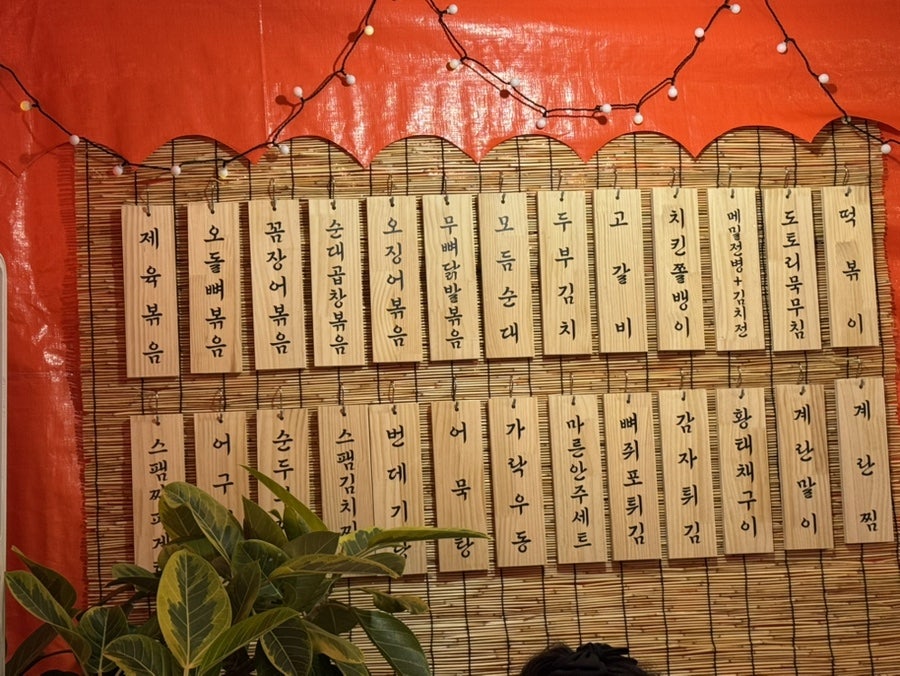 제육볶음
오돌뼈볶음
꼼장어볶음
순대곱창볶음
오징어볶음
무뼈닭발볶음
모듬순대
두부김치
고갈비
치킨쫄뱅이
메밀전병+김치전
도토리묵무침
떡볶이
스팸
어구
순두
스팸김치찌
번데기탕
어묵탕
가락우동
마른안주세트
뼈쥐포튀김
감자튀김
황태채구이
계란말이
계란찜